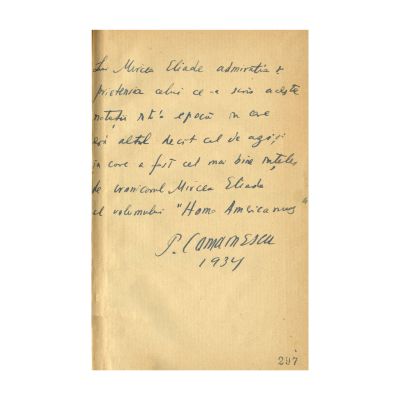 Lui Mircea Eliade admirația și
prietenia celui ce a scris aceste
notații într'o epocă în care
era altul decît cel de azi și
în care a fost cel mai bine înțeles
de cronicarul Mircea Eliade
al volumului "Homo Americanus"
P. Comarnescu
1934
297